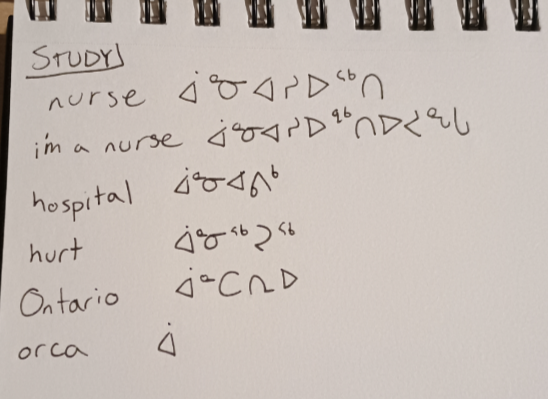 STUDY
nurse ᐋᓐᓂᐊᓯᐅᖅᑎ
i'm a nurse ᐋᓐᓂᐊᓯᐅᖅᑎᐅᔪᖓ
hospital ᐋᓐᓂᐊᕕᒃ
hurt ᐋᓐᓂᖅᑐᖅ
Ontario ᐋᓐᑕᕆᐅ
orca ᐋ